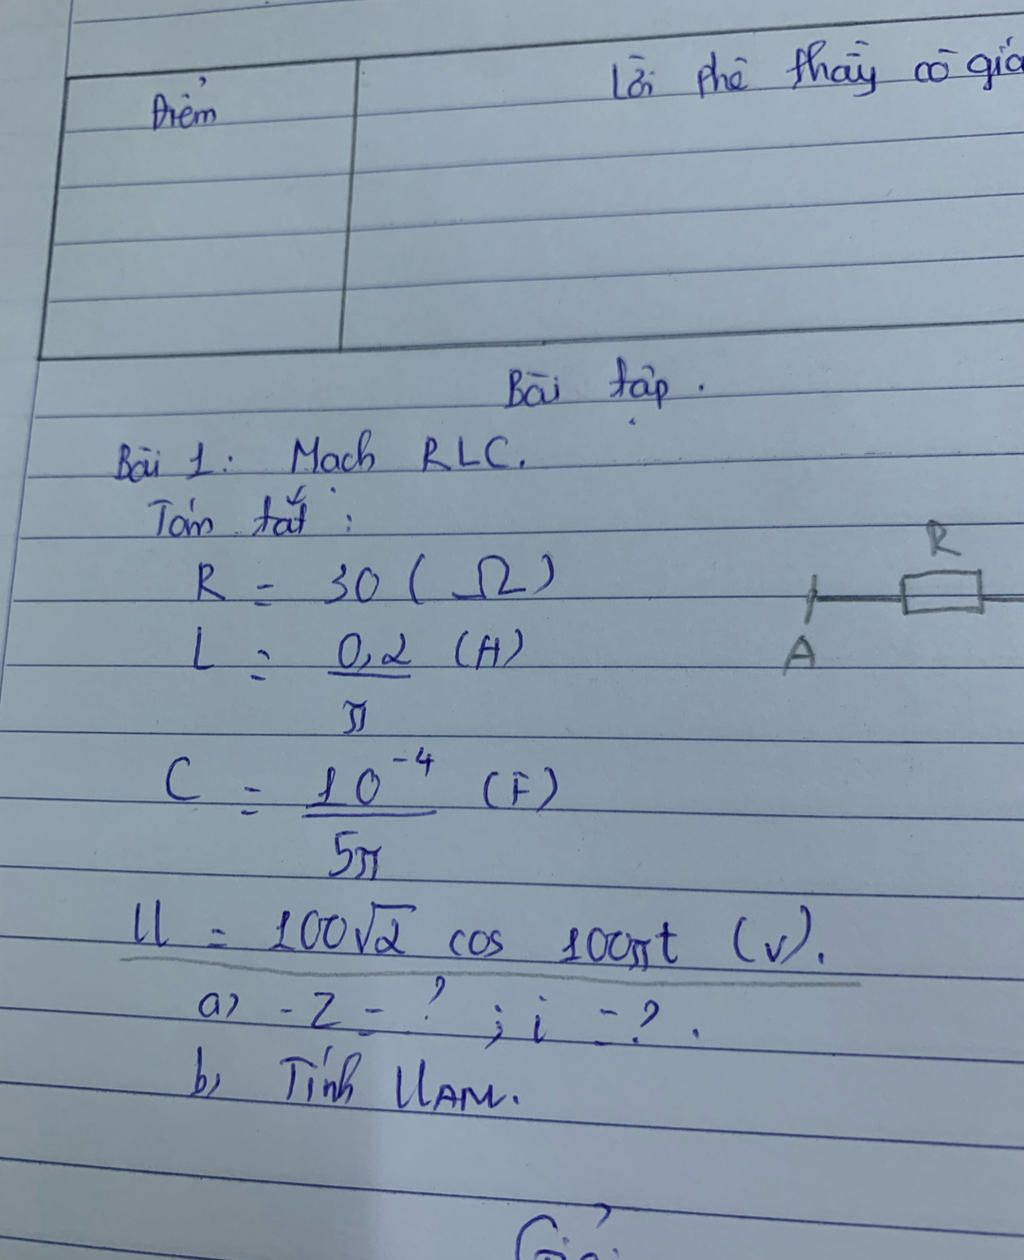 Điểm
Lời phê thầy cô giá
Bài tập.
Bài 1: Mạch RLC.
Tóm tắt:
R = 30 (Ω)
R
L = 0,2/π (H)
A
C = 10⁻⁴/5π (F)
U = 100√2 cos 100πt (V).
a) - Z = ? ; i = ?.
b) Tính UAM.
Giải